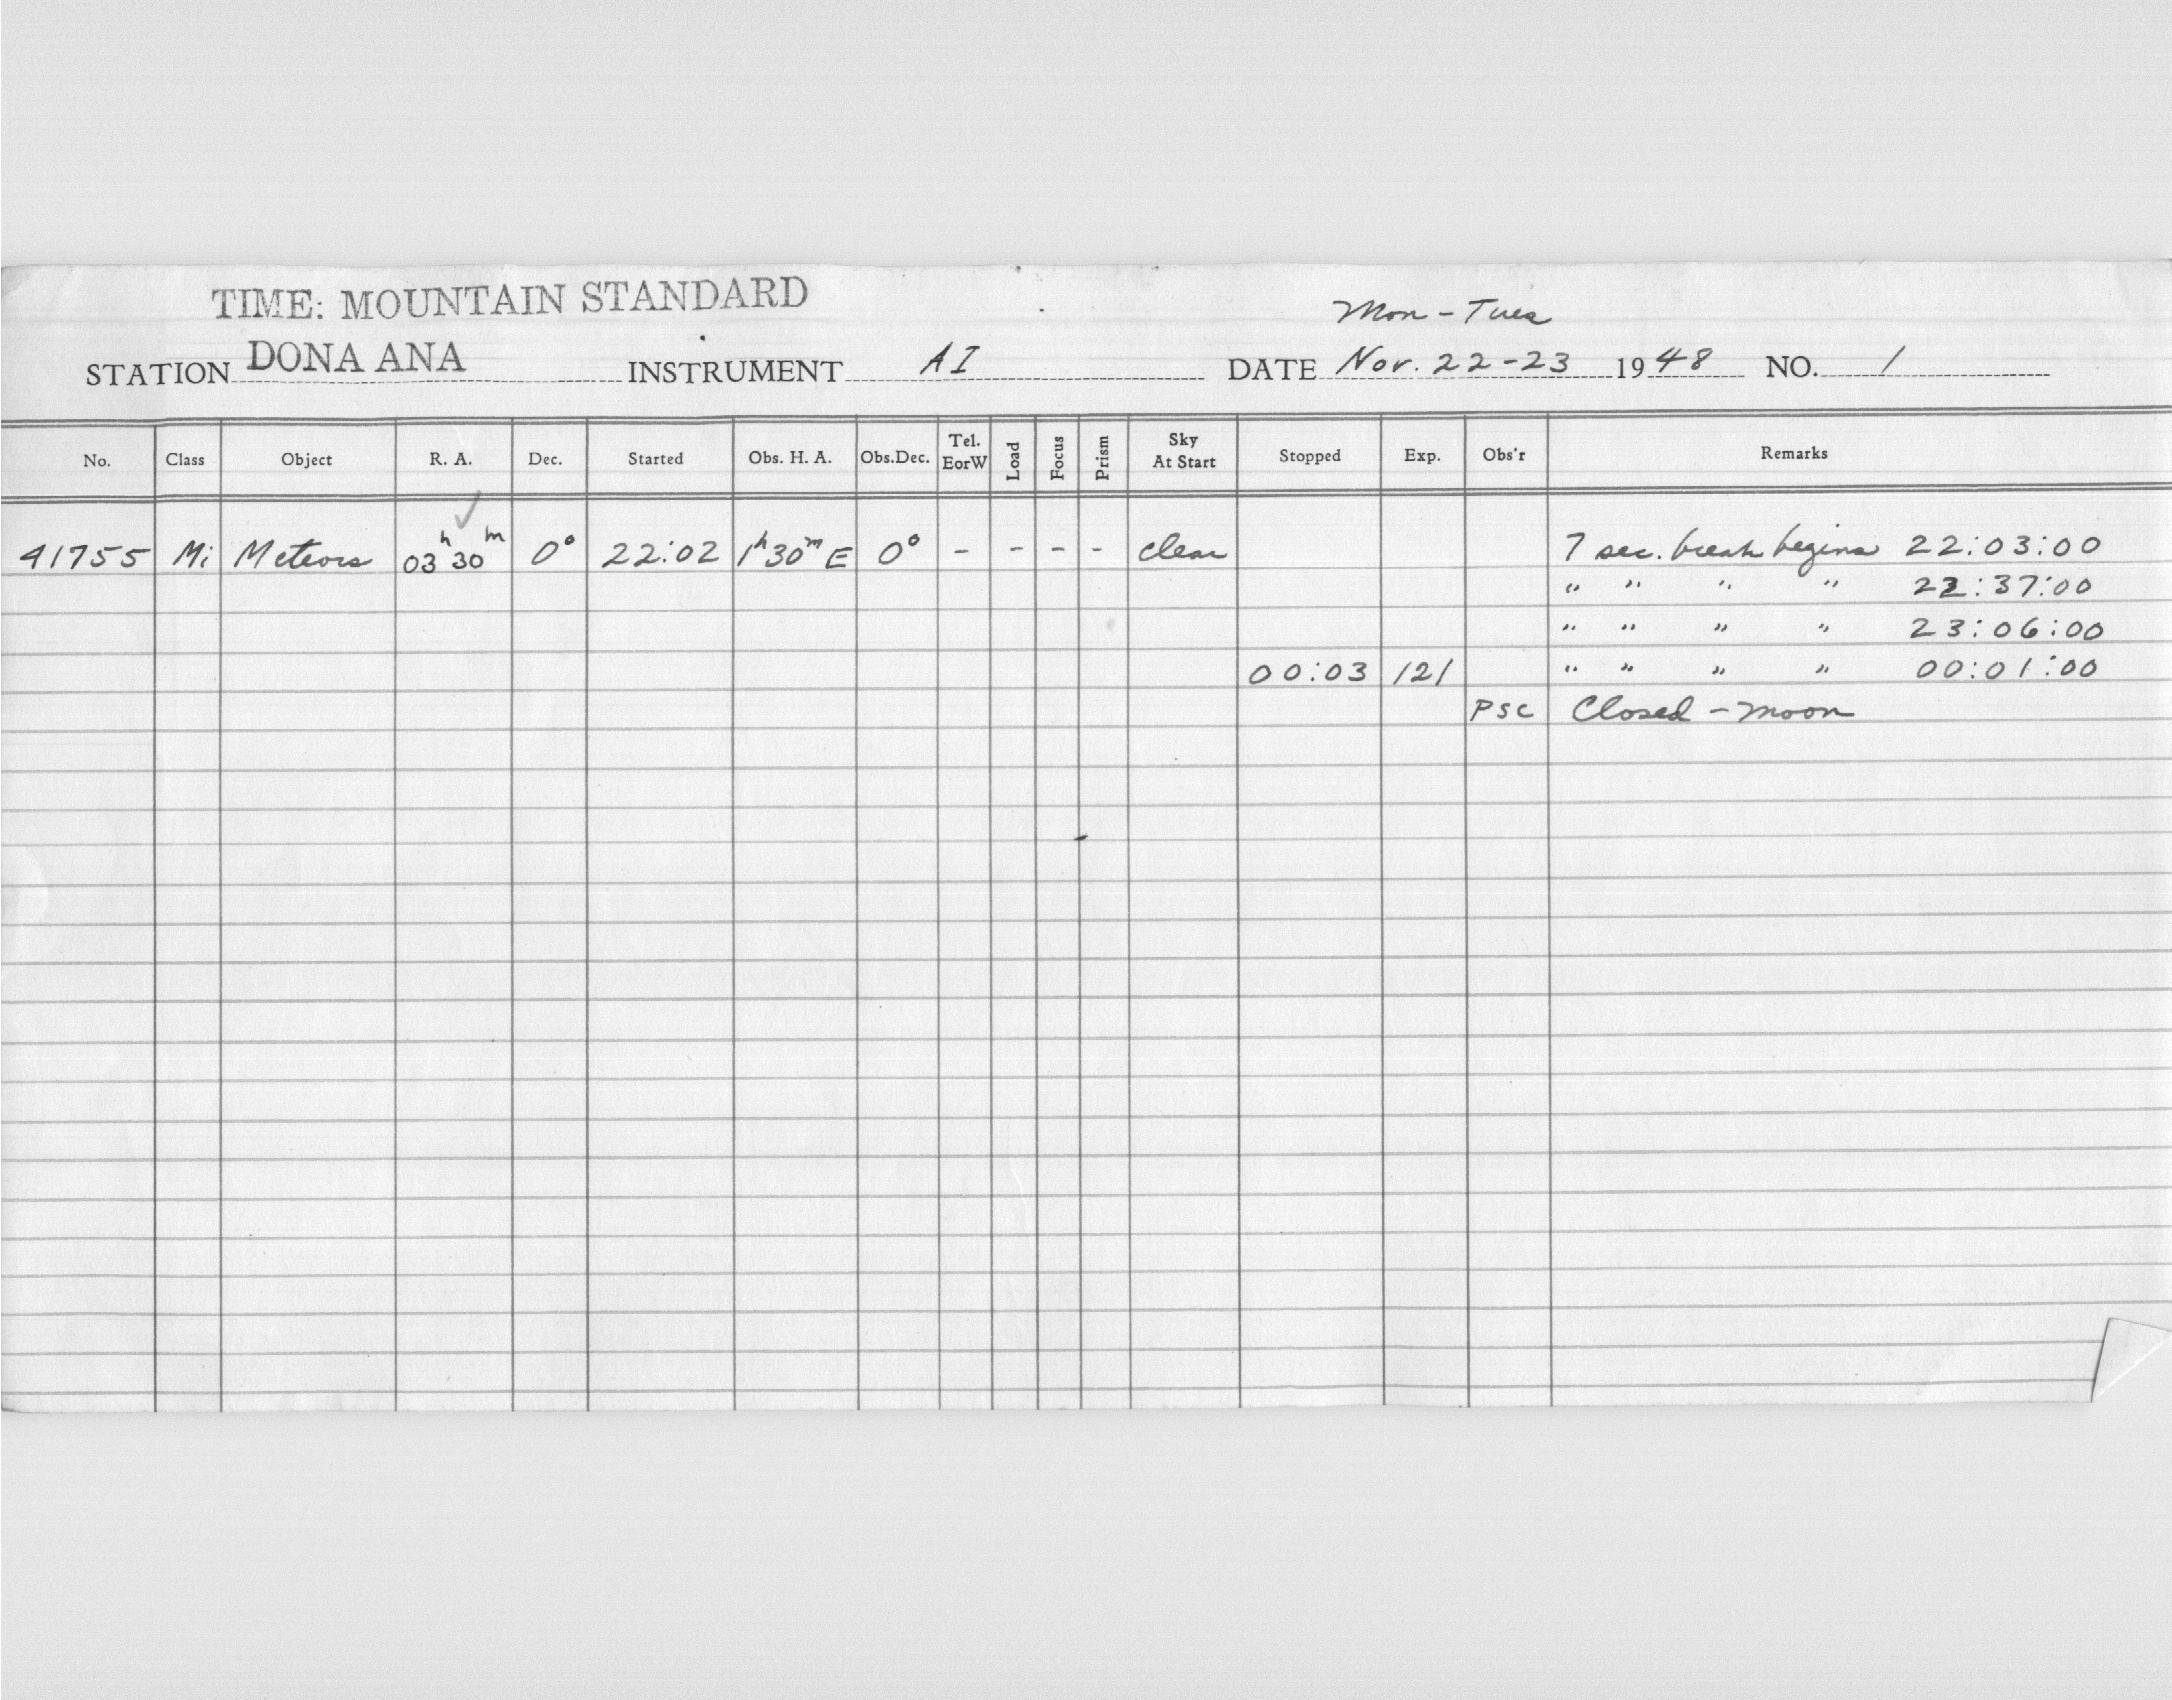 TIME: MOUNTAIN STANDARD
Mon - Tues
STATION DONA ANA INSTRUMENT AI DATE Nov. 22-23 1948 NO. 1
No. Class Object R. A. Dec. Started Obs. H. A. Obs.Dec. Tel. EorW Load Focus Prism Sky At Start Stopped Exp. Obs'r Remarks
41755 Mi Meteors 03h 30m 0° 22:02 1h30m E 0° - - - - clear 7 sec. break begins 22:03:00
" " " " 22:37:00
" " " " 23:06:00
00:03 121 " " " " 00:01:00
PSC Closed - moon